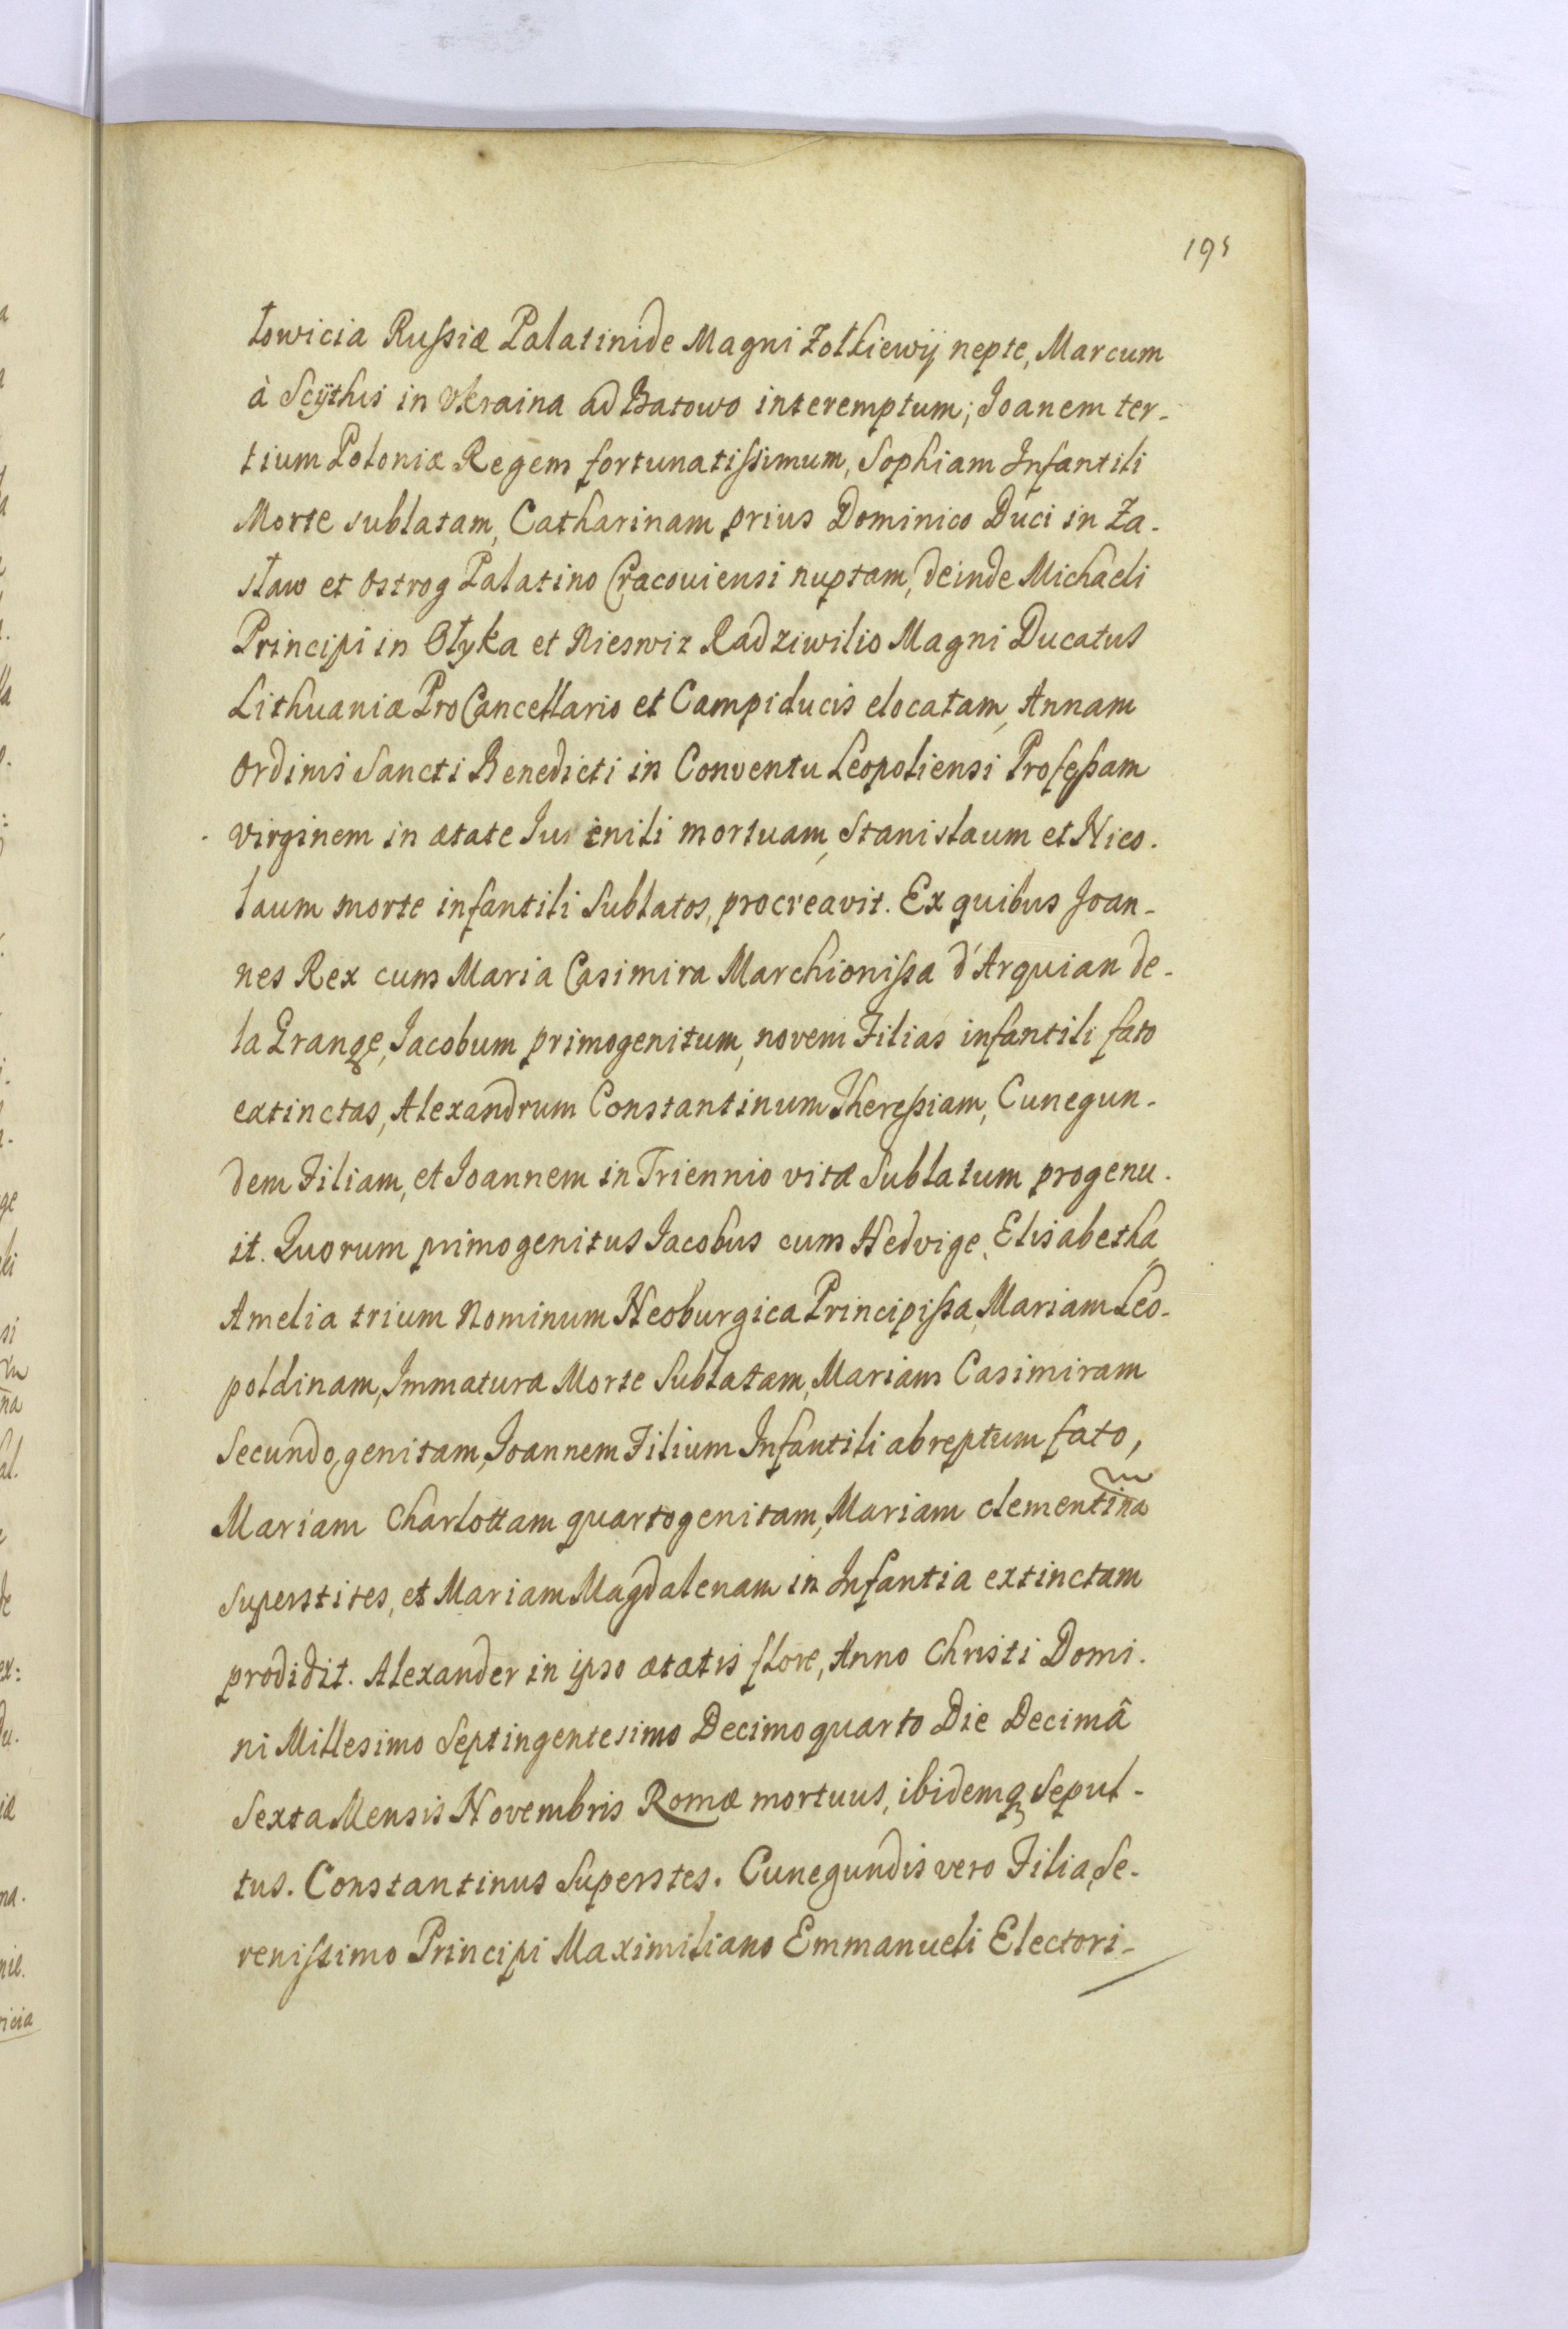 195
łowicia Russiæ Palatinide Magni Zołkiewij nepte, Marcum
à Scÿthis in Vkraina ad Batowo interemptum; Joanem ter-
tium Poloniæ Regem fortunatissimum, Sophiam Infantili
Morte sublatam, Catharinam prius Dominico Duci in Za-
sław et Ostrog Palatino Cracoviensi nuptam, deinde Michaeli
Principi in Ołyka et Nieswiz Radziwilio Magni Ducatus
Lithuaniæ ProCancellario et Campiducis elocatam, Annam
Ordinis Sancti Benedicti in Conventu Leopoliensi Professam
virginem in ætate Juvenili mortuam, Stanislaum et Nico-
laum morte infantili Sublatos, procreavit. Ex quibus Joan-
nes Rex cum Maria Casimira Marchionissa d'Arquian de-
la Grange, Jacobum primogenitum, novem Filias infantili fato
extinctas, Alexandrum Constantinum Theressiam, Cunegun-
dem Filiam, et Joannem in Triennio vitæ Sublatum progenu-
it. Quorum primogenitus Jacobus cum Hedvige, Elisabetha,
Amelia trium Nominum Neoburgica Principissa, Mariam Leo-
poldinam, Immatura Morte Sublatam, Mariam Casimiram
Secundo genitam, Joannem Filium Infantili abreptum fato,
Mariam Charlottam quartogenitam, Mariam clementina͠m
superstites, et Mariam Magdalenam in Infantia extinctam
prodidit. Alexander in ipso ætatis flore, Anno Christi Domi-
ni Millesimo Septingentesimo Decimo quarto Die Decimâ
Sexta Mensis Novembris Romæ mortuus, ibidemq₃ Sepul-
tus. Constantinus Superstes. Cunegundis vero Filia, Se-
renissimo Principi Maximiliano Emmanueli Electori-